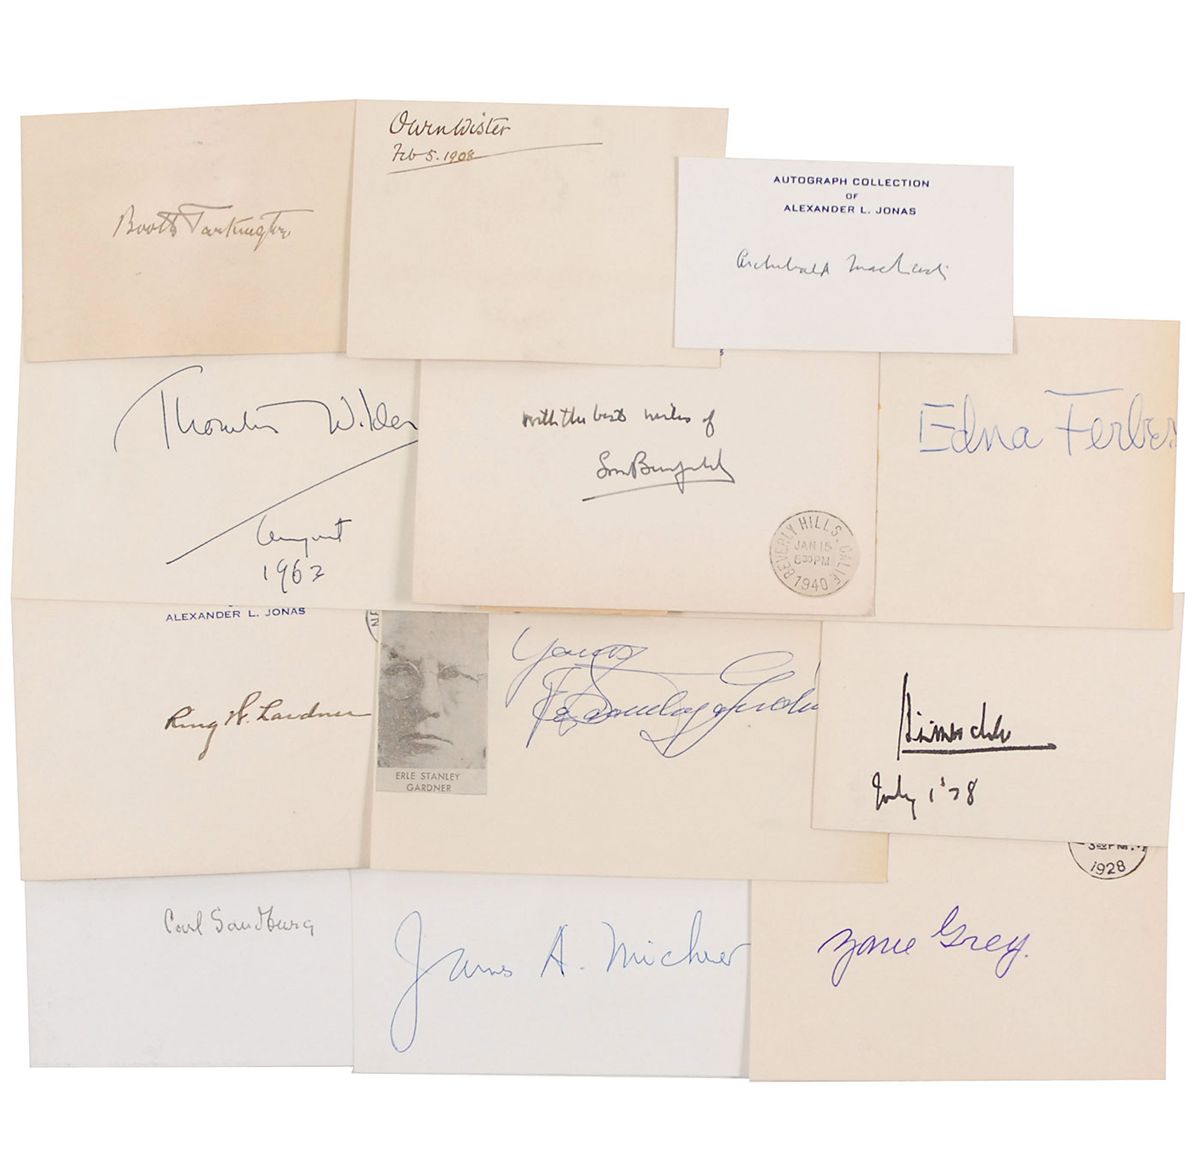 Booth Tarkington
Owen Wister
Feb 5. 1908
AUTOGRAPH COLLECTION
OF
ALEXANDER L. JONAS
Archibald MacLeish
Thornton Wilder
August
1962
with the best wishes of
BEVERLY HILLS, CALIF
JAN 15
6 30 PM
1940
Edna Ferber
ALEXANDER L. JONAS
Ring W. Lardner
Yours
Erle Stanley Gardner
ERLE STANLEY
GARDNER
July 1 '78
3 30 PM
1928
Carl Sandburg
James A. Michener
Zane Grey.